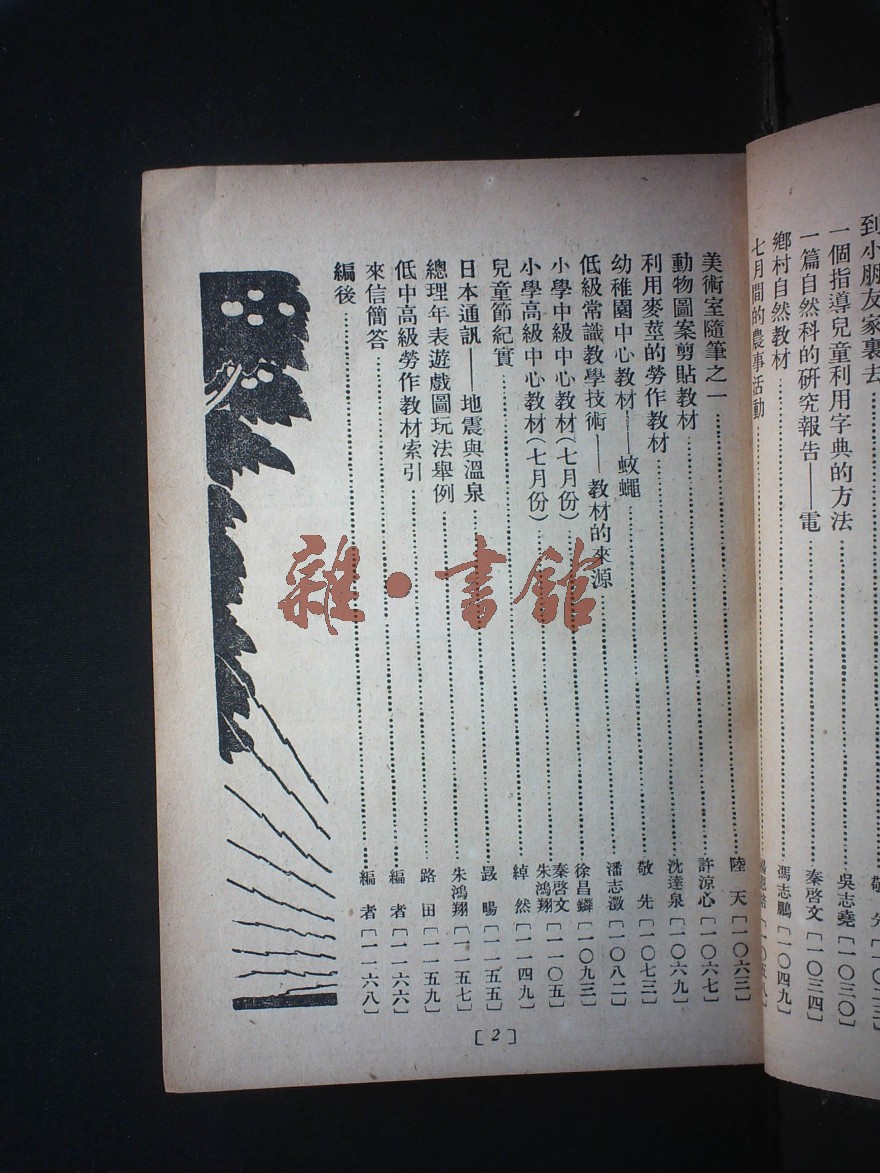 到小朋友家裏去
一個指導兒童利用字典的方法…吳志堯[一〇三〇]
一篇自然科的研究報告——電…秦啓文[一〇三四]
鄉村自然教材…馮志鵬[一〇四九]
七月間的農事活動…[一〇五八]
美術室隨筆之一…陸 天[一〇六三]
動物圖案剪貼教材…許涼心[一〇六七]
利用麥莖的勞作教材…沈達泉[一〇六九]
幼稚園中心教材——蚊蠅…敬 先[一〇七三]
低級常識教學技術——教材的來源…潘志澂[一〇八二]
小學中級中心教材(七月份)…徐昌鏻[一〇九三]
小學高級中心教材(七月份)…秦啓文 朱鴻翔[一一〇五]
兒童節紀實…綽 然[一一四九]
日本通訊——地震與溫泉…暘[一一五五]
總理年表遊戲圖玩法舉例…朱鴻翔[一一五七]
低中高級勞作教材索引…路 田[一一五九]
來信簡答…編 者[一一六六]
編後…編 者[一一六八]
[2]
雜·書館